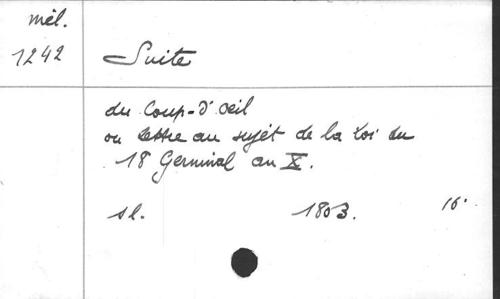 mél.
1242
Suite
du Coup-d'œil
ou lettre au sujet de la Loi du
18 Germinal an X.
sl. 1803. 16°